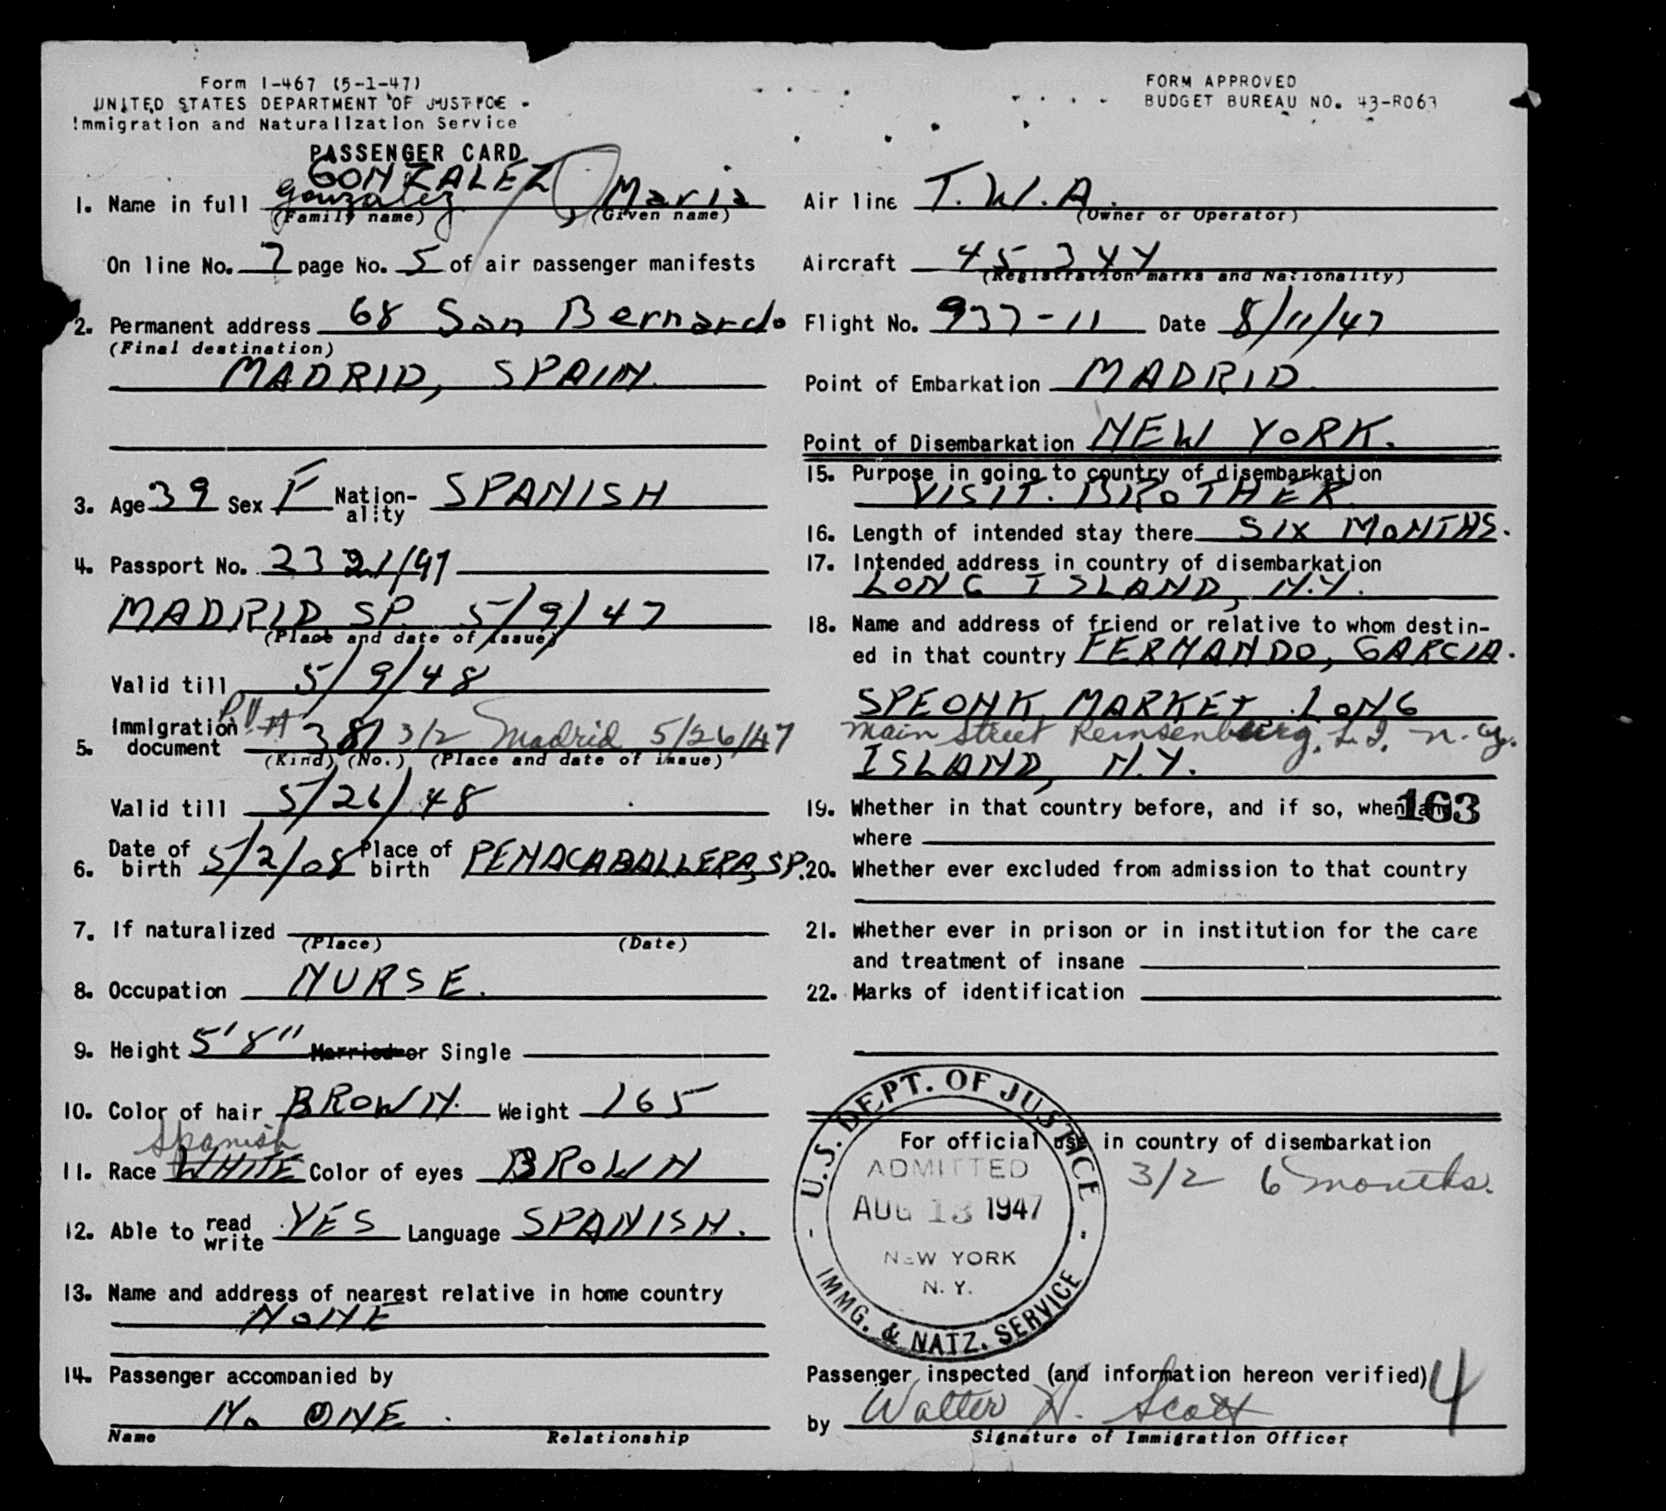 Form I-467 (5-1-47)
UNITED STATES DEPARTMENT OF JUSTICE
Immigration and Naturalization Service
FORM APPROVED
BUDGET BUREAU NO. 43-R063
PASSENGER CARD
GONZALEZ
1. Name in full gonzalez, Maria
(Family name) (Given name)
On line No. 7 page No. 5 of air passenger manifests
2. Permanent address 68 San Bernardo
(Final destination)
MADRID, SPAIN.
3. Age 39 Sex F Nation-ality SPANISH
4. Passport No. 2321/47
MADRID SP. 5/9/47
(Place and date of issue)
Valid till 5/9/48
5. Immigration document # 381 3/2 Madrid 5/26/47
(Kind) (No.) (Place and date of issue)
Valid till 5/26/48
6. Date of birth 5/2/08 Place of birth PENACABALLERA, SP.
7. If naturalized
(Place) (Date)
8. Occupation NURSE.
9. Height 5'8" Married or Single
10. Color of hair BROWN. Weight 165
Spanish
11. Race WHITE Color of eyes BROWN
12. Able to read write YES Language SPANISH.
13. Name and address of nearest relative in home country
NONE
14. Passenger accompanied by
N. ONE.
Name Relationship
Air line T.W.A.
(Owner or Operator)
Aircraft 45344
(Registration marks and Nationality)
Flight No. 937-11 Date 8/11/47
Point of Embarkation MADRID.
Point of Disembarkation NEW YORK.
15. Purpose in going to country of disembarkation
VISIT. BROTHER
16. Length of intended stay there SIX MONTHS.
17. Intended address in country of disembarkation
LONG ISLAND, N.Y.
18. Name and address of friend or relative to whom destin-
ed in that country FERNANDO, GARCIA.
SPEONK MARKET LONG
Main Street Remsenburg, L.I. N.Y.
ISLAND, N.Y.
19. Whether in that country before, and if so, when and
163
where
20. Whether ever excluded from admission to that country
21. Whether ever in prison or in institution for the care
and treatment of insane
22. Marks of identification
For official use in country of disembarkation
3/2 6 months.
U.S. DEPT. OF JUSTICE
ADMITTED
AUG 13 1947
NEW YORK
N. Y.
IMMG. & NATZ. SERVICE
Passenger inspected (and information hereon verified)
4
by Walter H. Scott
Signature of Immigration Officer